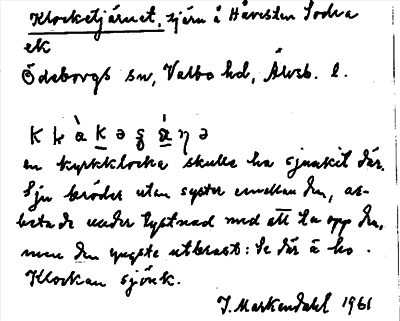 Klocketjärnet, tjärn å Håvesten Södra
ek
Ödeborgs sn, Valbo hd, Älvsb. l.
en kyrkklocka skulle ha sjunkit där.
Sju bröder utan syster emellan dem, ar-
betade under tystnad med att ta opp den,
men den yngste utbrast: Se där ä ho.
Klockan sjönk.
J. Markendahl 1961